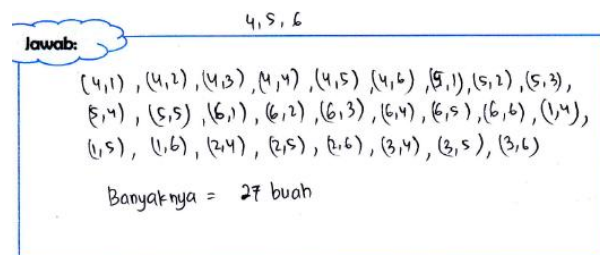 4, 5, 6
Jawab:
(4,1) , (4,2) , (4,3) , (4,4) , (4,5) (4,6) , (5,1) , (5,2) , (5,3) ,
(5,4) , (5,5) , (6,1) , (6,2) , (6,3) , (6,4) , (6,5) , (6,6) , (1,4) ,
(1,5) , (1,6) , (2,4) , (2,5) , (2,6) , (3,4) , (3,5) , (3,6)
Banyaknya = 27 buah